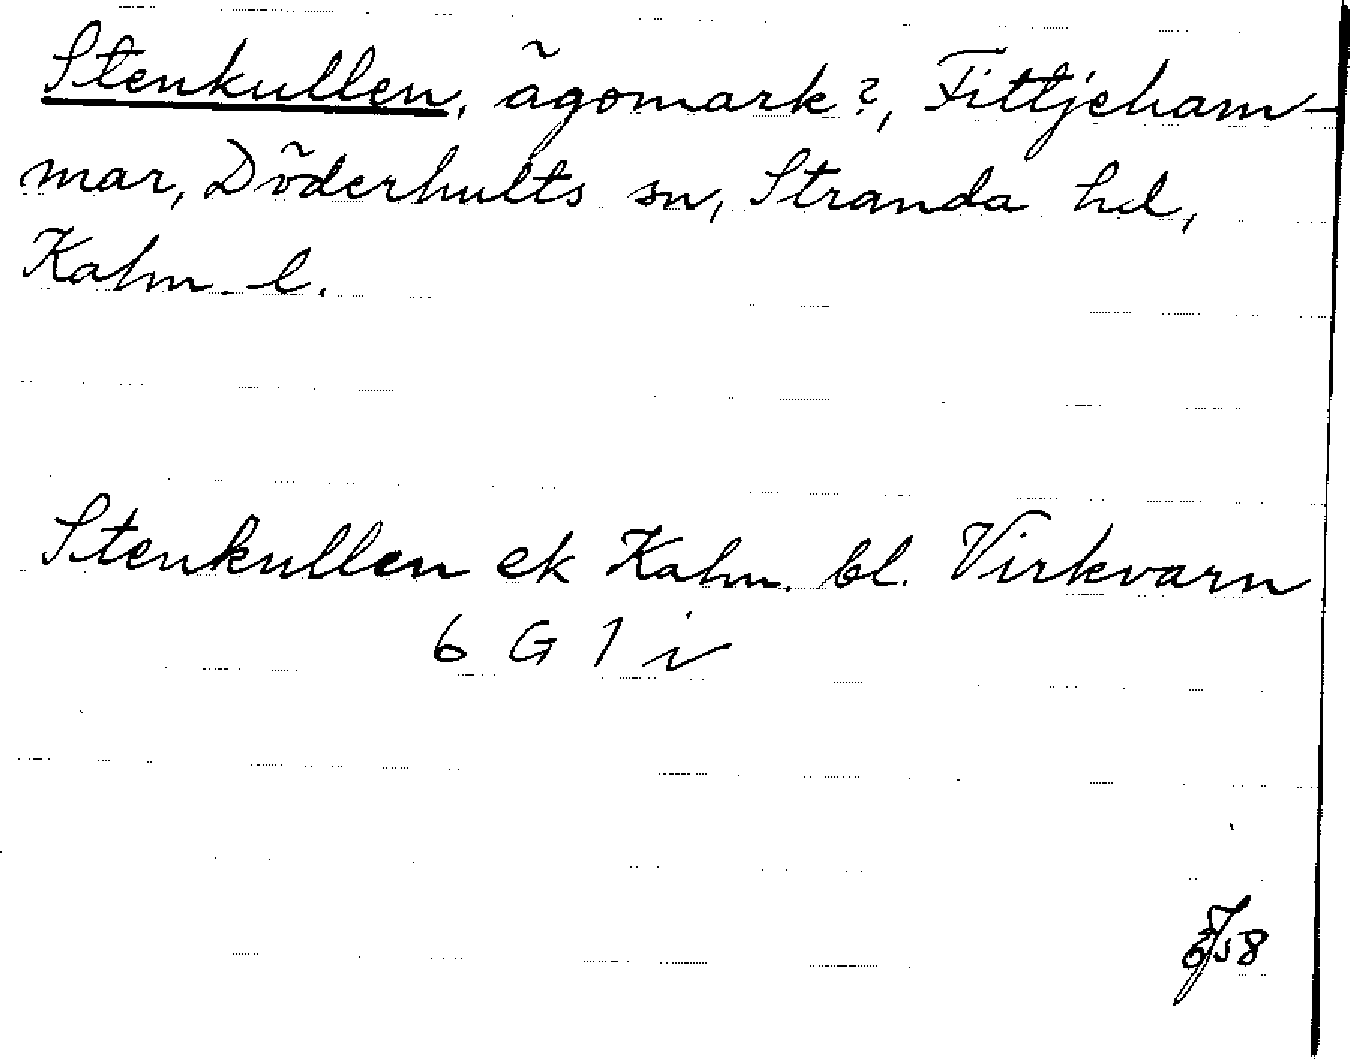 Stenkullen, ägomark?, Fittjeham-
mar, Döderhults sn, Stranda hd,
Kalm. l.
Stenkullen ek Kalm. bl. Virkvarn
6 G 1 i